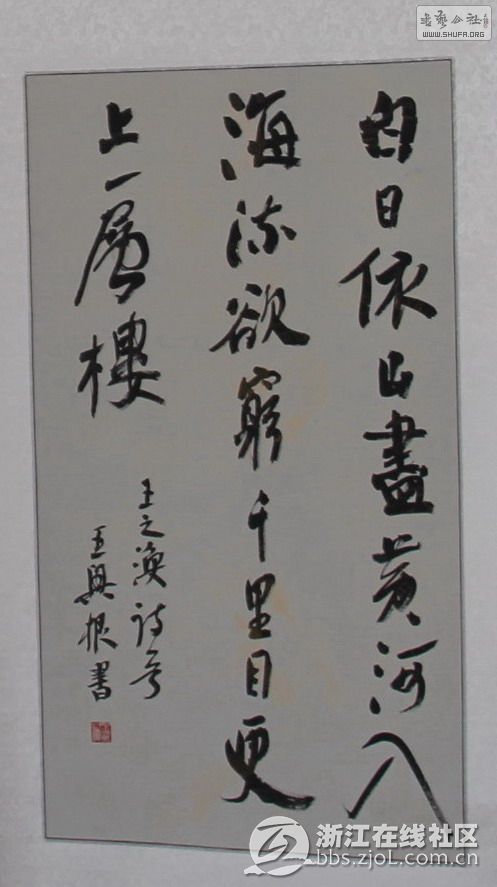 書藝公社
WWW.SHUFA.ORG
白日依山盡黄河入
海流欲窮千里目更
上一層樓
王之渙詩
王興根書
浙江在线社区
bbs.zjol.com.cn